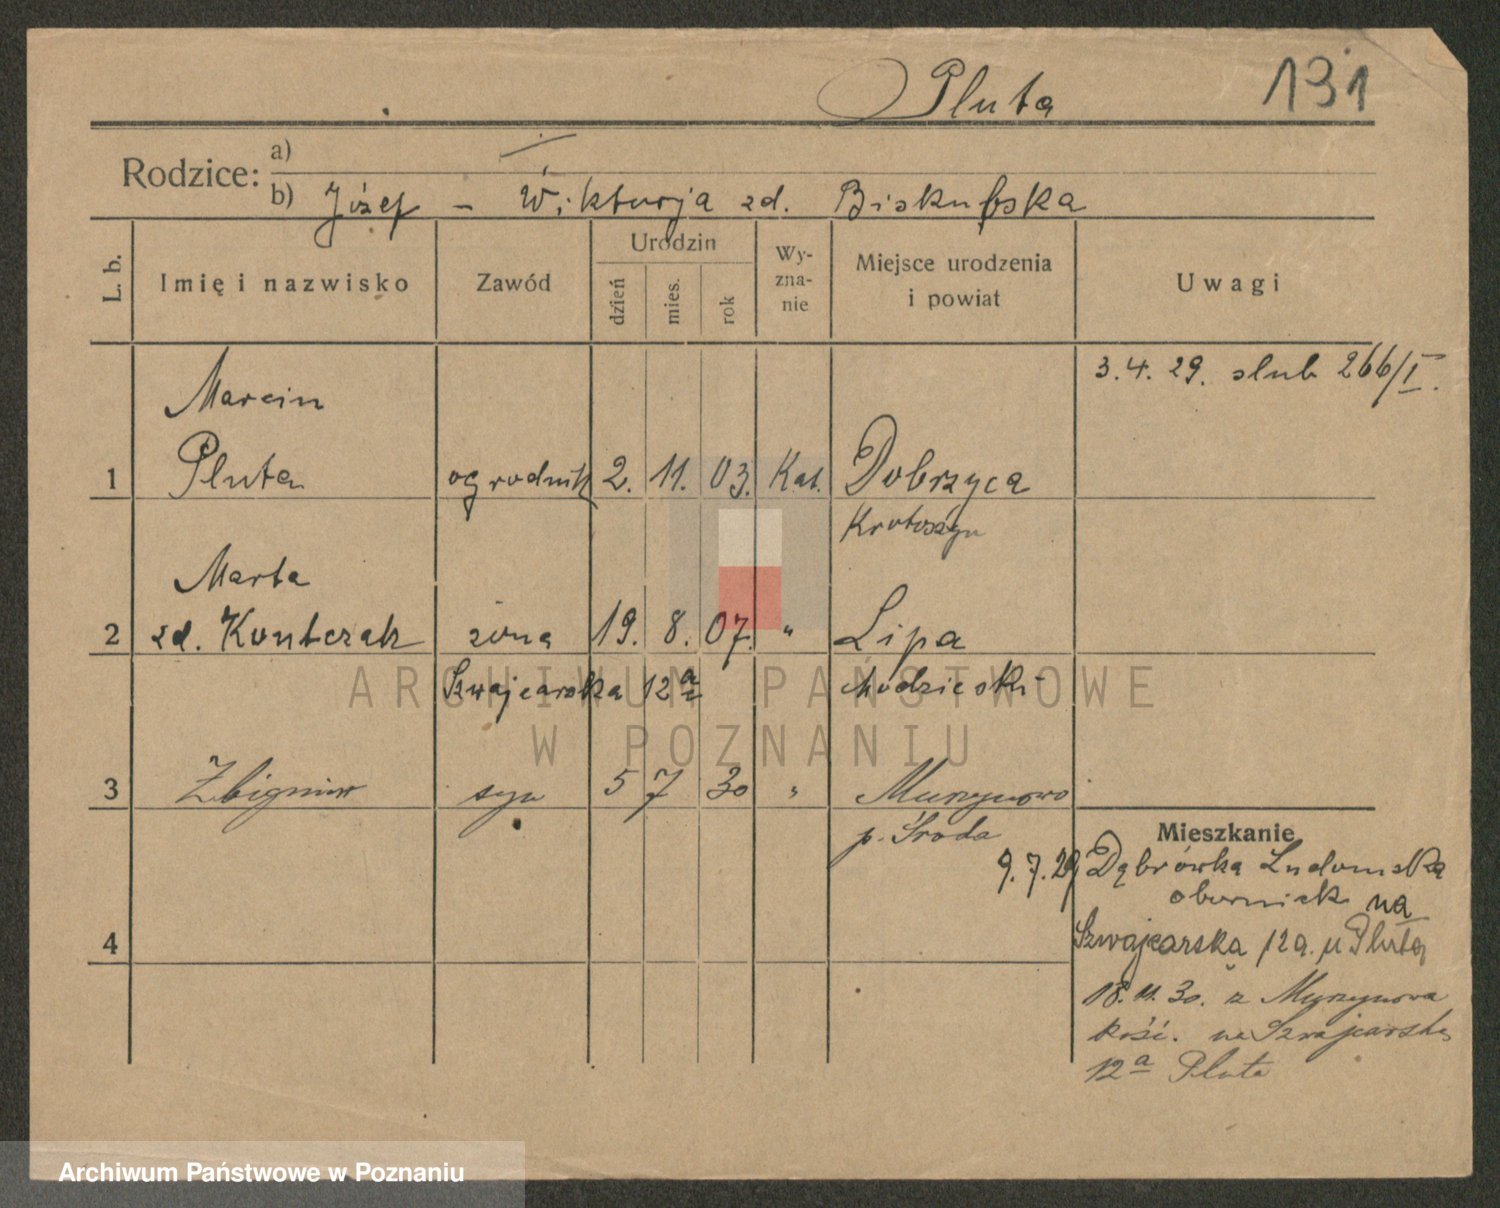 Pluta 131
Rodzice: a)
b) Józef – Wiktorja zd. Biskupska
L. b. Imię i nazwisko Zawód Urodzin dzień mies. rok Wy-zna-nie Miejsce urodzenia i powiat Uwagi
3.4.29. slub 266/I.
Marcin
1 Pluta ogrodnik 2. 11. 03. Kat. Dobrzyca
Krotoszyn
Marta
2 zd. Kontczak zona 19. 8. 07. " Lipa
Szwajcarska 12a
3 Zbigniew syn 5 7 30 " Murzynowo
p. Środa
Mieszkanie
9.7.29 Dąbrówka Ludomska
obornick na
4 Szwajcarska 12a. u Pluta
18.11.30. z Murzynowa
kość. na Szwajcarską
12a Pluta
ARCHIWUM PAŃSTWOWE
W POZNANIU
Archiwum Państwowe w Poznaniu